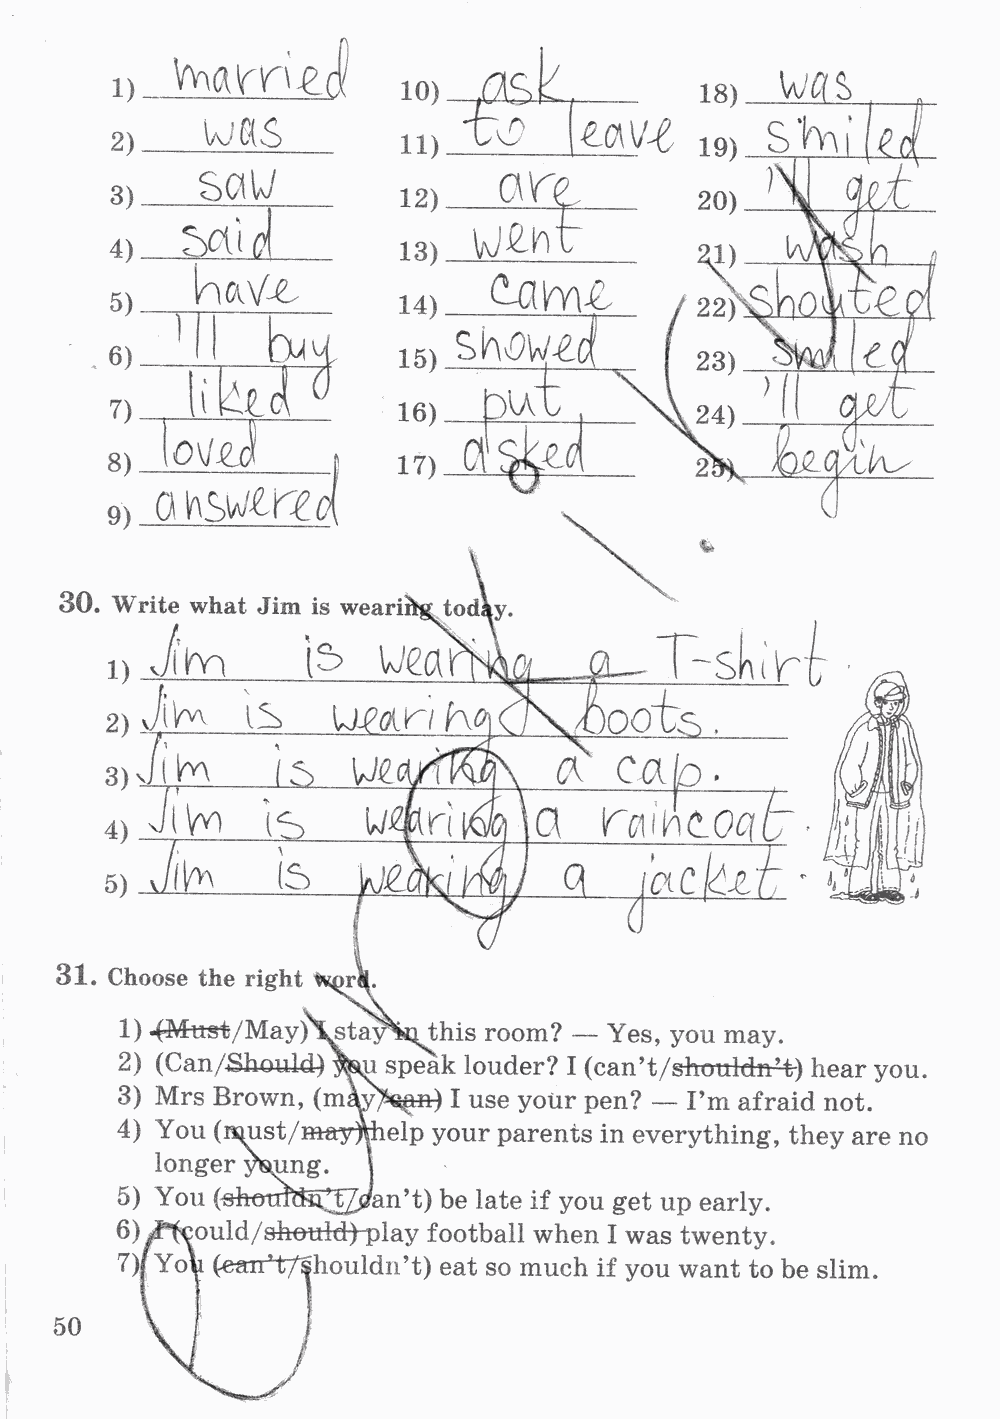 1) married
2) was
3) saw
4) said
5) have
6) 'll buy
7) liked
8) loved
9) answered
10) ask
11) to leave
12) are
13) went
14) came
15) showed
16) put
17) asked
18) was
19) smiled
20) 'll get
21) wash
22) shouted
23) smiled
24) 'll get
25) begin
30. Write what Jim is wearing today.
1) Jim is wearing a T-shirt.
2) Jim is wearing boots.
3) Jim is wearing a cap.
4) Jim is wearing a raincoat.
5) Jim is wearing a jacket.
31. Choose the right word.
1) (Must/May) I stay in this room? — Yes, you may.
2) (Can/Should) you speak louder? I (can't/shouldn't) hear you.
3) Mrs Brown, (may/can) I use your pen? — I'm afraid not.
4) You (must/may) help your parents in everything, they are no
longer young.
5) You (shouldn't/can't) be late if you get up early.
6) I (could/should) play football when I was twenty.
7) You (can't/shouldn't) eat so much if you want to be slim.
50